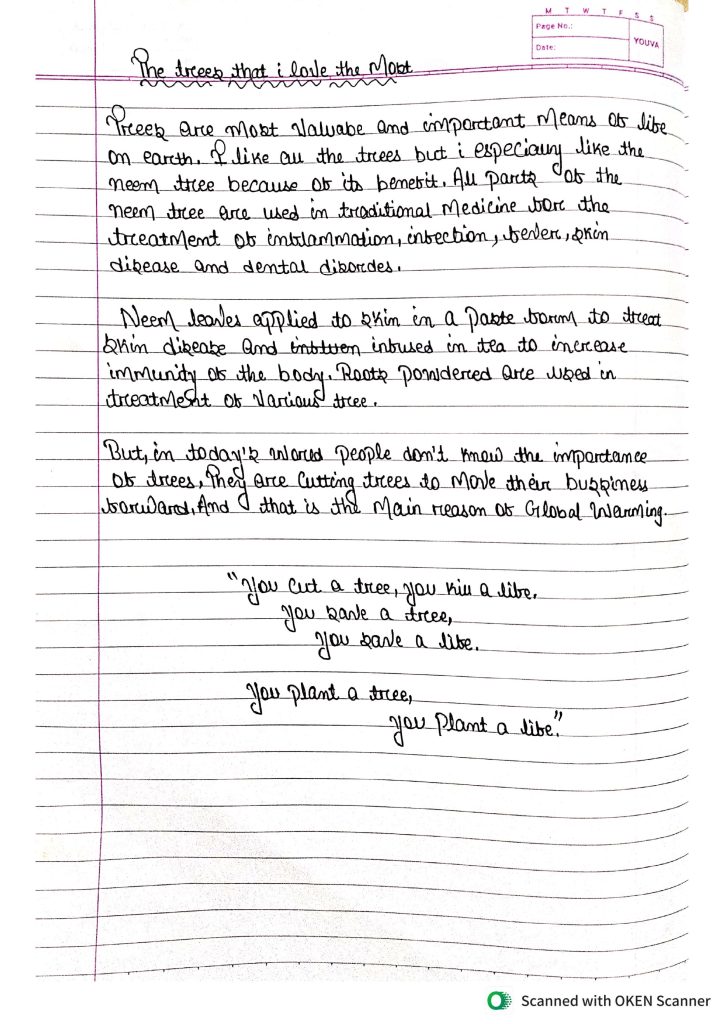 M T W T F S S
Page No.:
Date:
YOUVA
The trees that i love the Most
Trees are most Valuabe and important Means of life
on earth. I like all the trees but i especially like the
neem tree because of its benefit. All parts of the
neem tree are used in traditional Medicine for the
treatMent of inflammation, infection, fever, skin
disease and dental disordes.
Neem leaves applied to skin in a Paste form to treat
skin disease and infused in tea to increase
immunity of the body. Roots powdered are used in
treatment of Various tree.
But, in today's world people don't know the importance
of trees, They are Cutting trees to Move their bussiness
forward, And that is the Main reason of Global Warming.
"You cut a tree, you kill a life.
You save a tree,
You save a life.
You plant a tree,
You Plant a life."
Scanned with OKEN Scanner